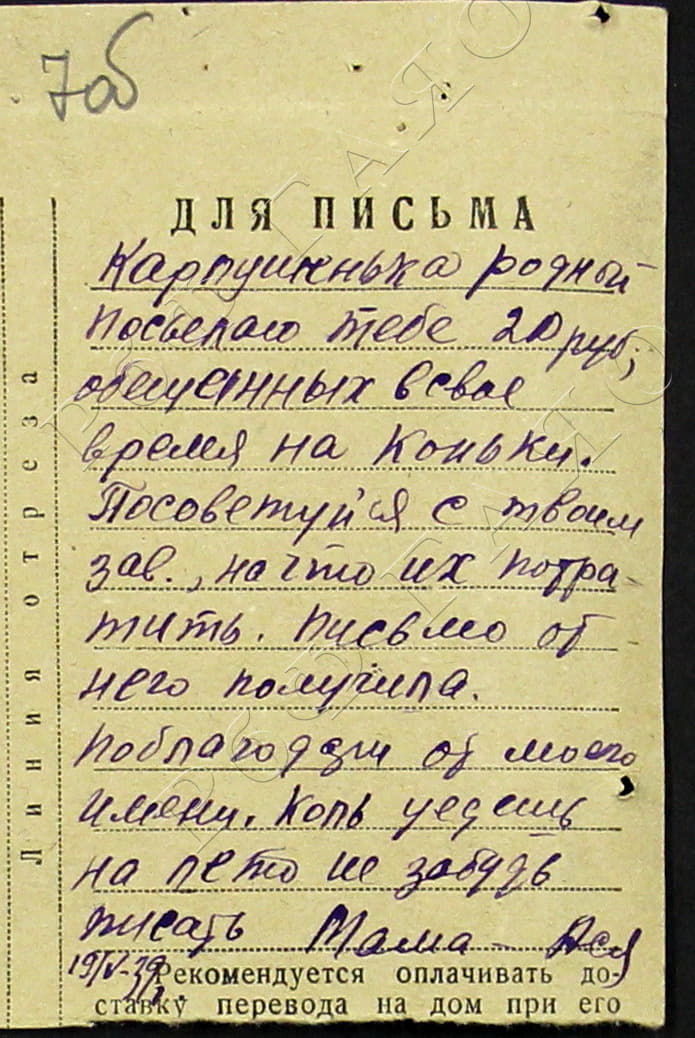 7об
ДЛЯ ПИСЬМА
Карпушенька родный
посылаю тебе 20 руб,
обещанных в свое
время на коньки.
Посоветуйся с твоим
зав., на что их потра-
тить. Письмо от
него получила.
Поблагодари от моего
имени. Коль уедешь
на лето не забудь
писать Мама - Ася
19/IV-39
Рекомендуется оплачивать до-
ставку перевода на дом при его
Линия отреза